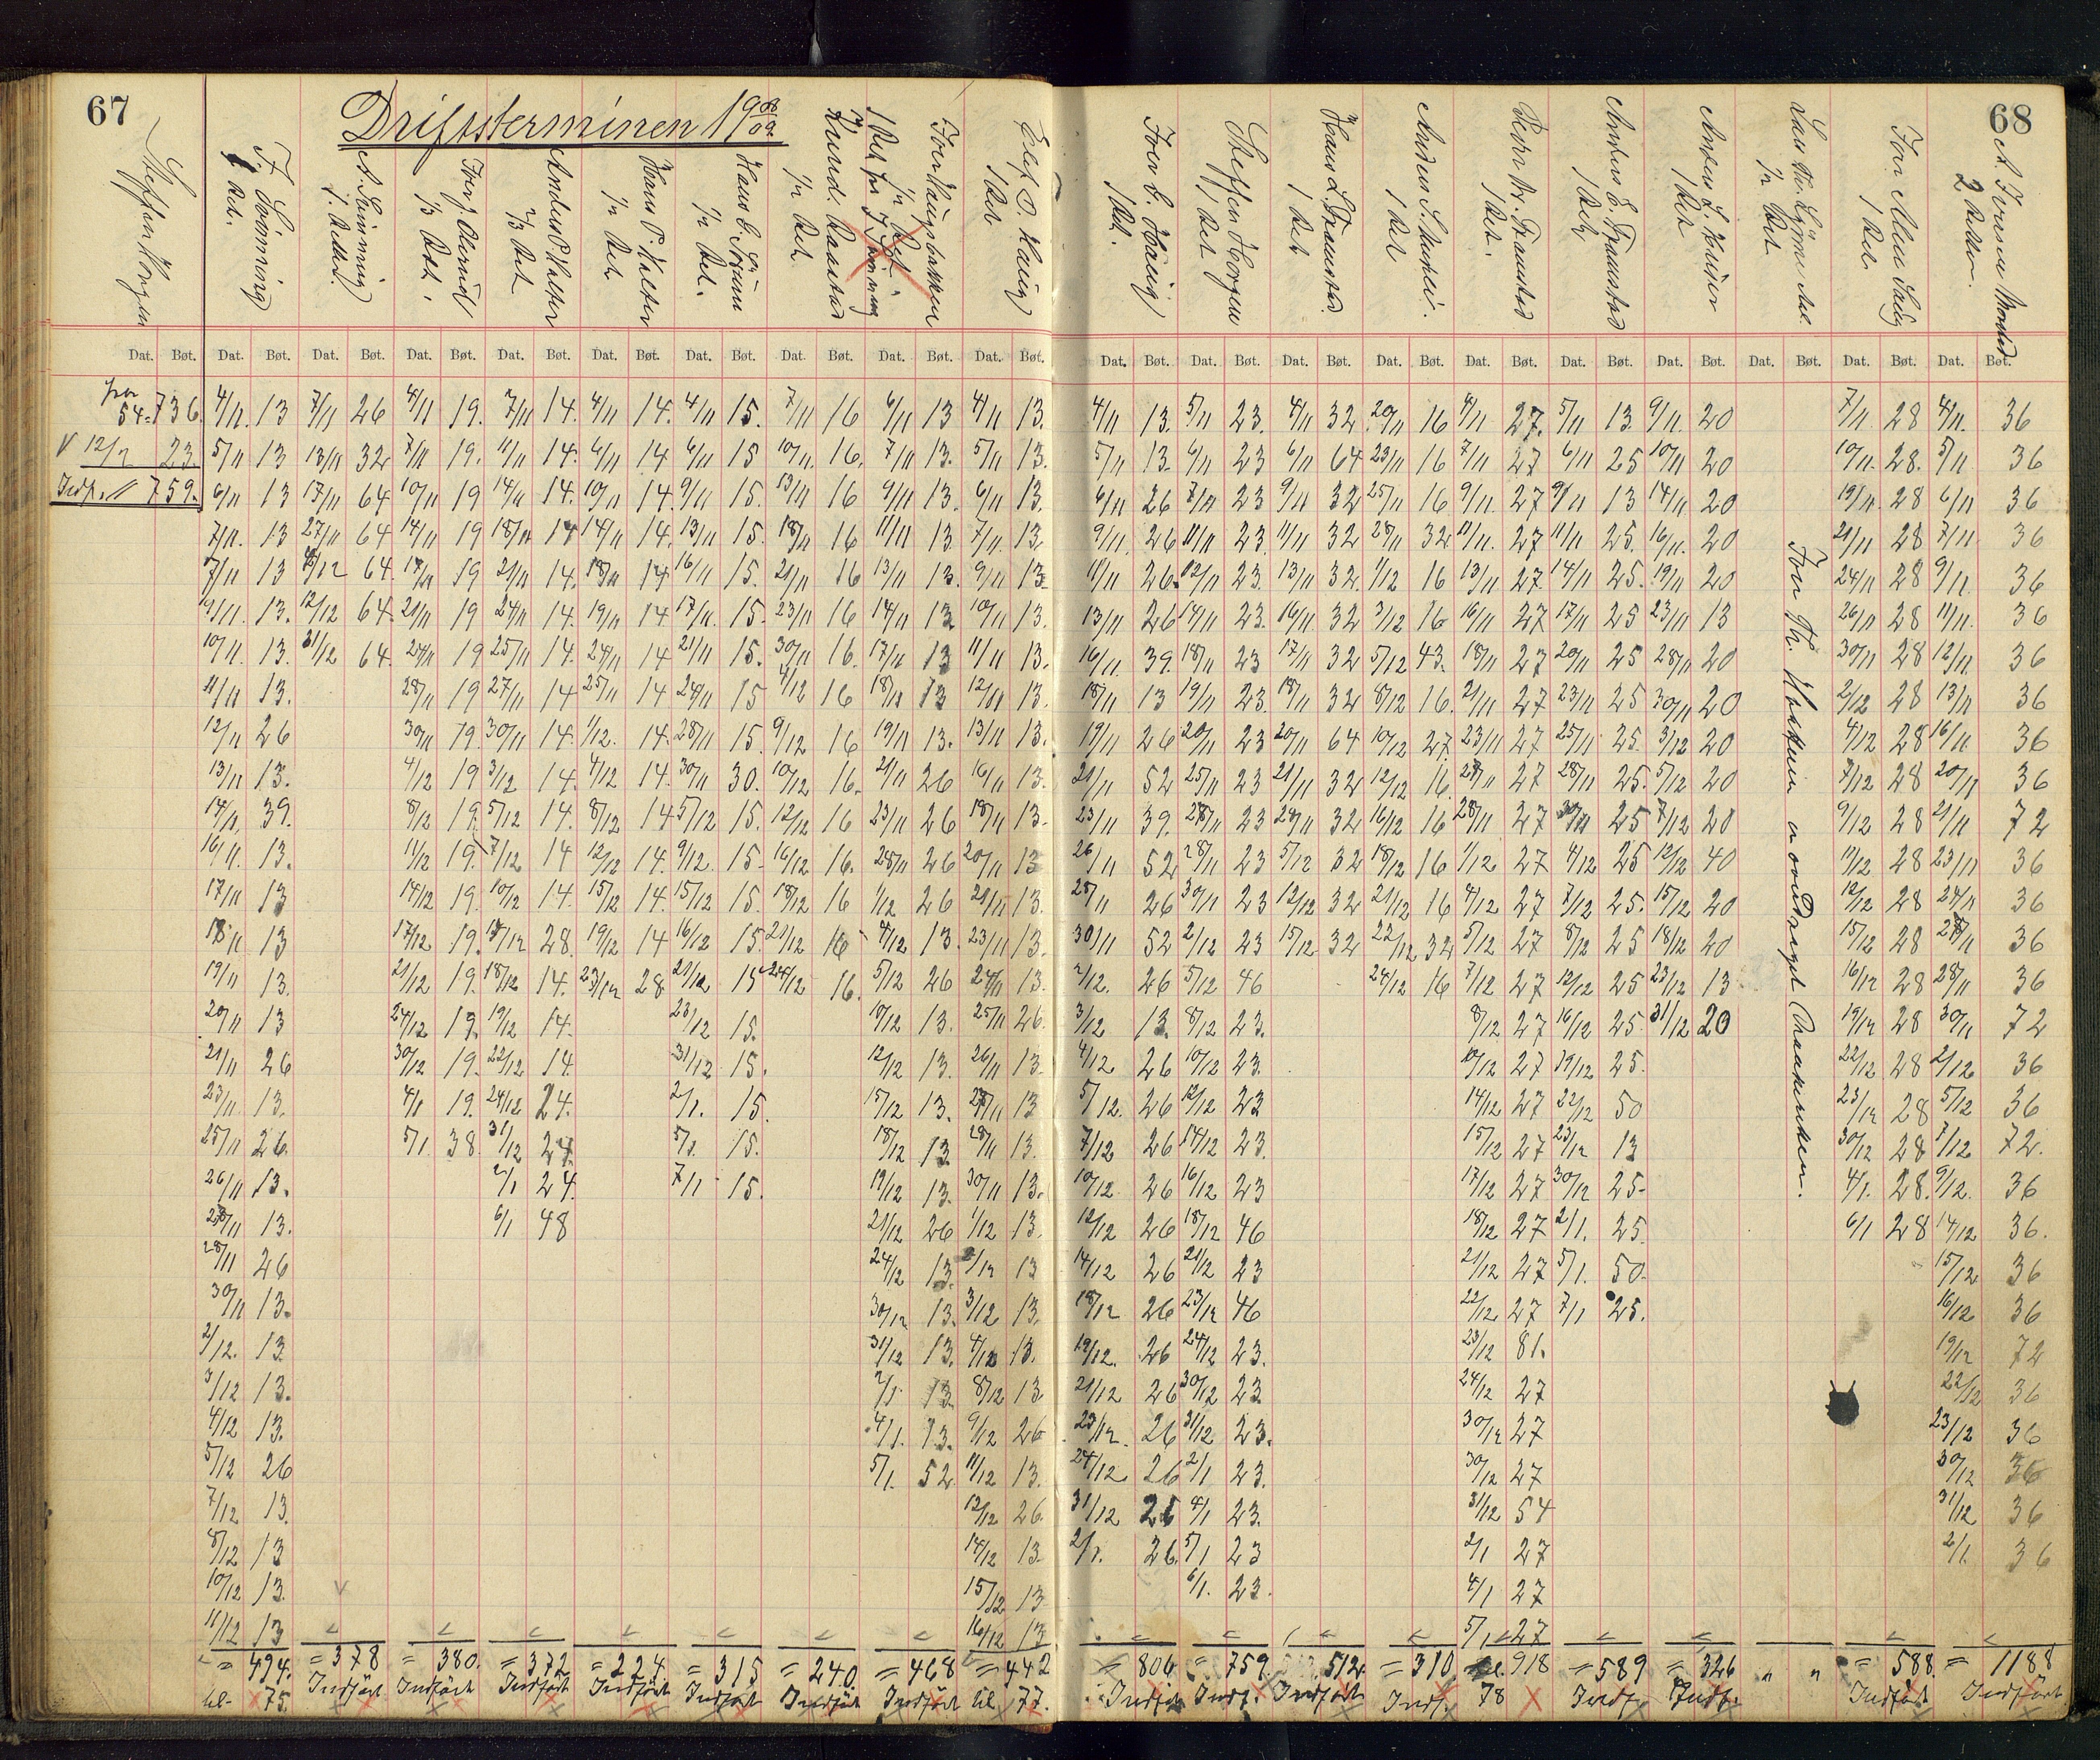 67
Driftsterminen 19 08/09.
68
Steffen Horgen
J. Lønning 1 Ret.
A. Lønning 1. Rettid.
Iver J. Ulerud ⅓ Ret.
Anders P. Kalfer ⅔ Ret
Hans P. Kalfer ½ Ret.
Hans G. Sørum ½ Ret.
½ Ret.
Iver Haugsbakken ½ Ret
Elef O. Haug 1 Ret
Iver C. Haug 1 Ret.
Steffen Horgen 1 Ret
Hans L. Framstad. 1 Ret
Anders S. 1 Ret
Peder Kr. Framstad 1 Ret.
Anders E. Framstad 1 Ret
Anders L. 1 Ret
½ Ret
1 Ret.
A. Iversen 2 Retter.
Dat. Bøt. Dat. Bøt. Dat. Bøt. Dat. Bøt. Dat. Bøt. Dat. Bøt. Dat. Bøt. Dat. Bøt. Dat. Bøt. Dat. Bøt.
Dat. Bøt. Dat. Bøt. Dat. Bøt. Dat. Bøt. Dat. Bøt. Dat. Bøt. Dat. Bøt. Dat. Bøt. Dat. Bøt. Dat. Bøt.
fra 54=736. 4/11. 13 7/11 26 4/11 19. 7/11 14. 4/11 14. 4/11 15. 7/11 16 6/11 13 4/11 13.
4/11 13. 5/11 23. 4/11 32 20/11 16 4/11 27. 5/11 13. 9/11. 20 7/11 28 4/11. 36
V 12/1 23. 5/11 13 13/11 32 7/11 19. 11/11 14. 6/11 14 6/11 15 10/11. 16. 7/11 13. 5/11 13.
5/11 13. 6/11 23 6/11 64 23/11 16 7/11 27 6/11 25 10/11 20 10/11. 28. 5/11 36
Indf. 759. 6/11 13 17/11 64 10/11 19 14/11 14. 10/11 14. 9/11 15. 13/11 16 9/11 13. 6/11 13.
6/11 26 7/11 23 9/11 32 25/11 16 9/11. 27 9/11 13 14/11 20 19/11. 28 6/11 36
7/11. 13 27/11 64 14/11 19 18/11 14 14/11 14. 13/11 15. 18/11 16 11/11 13. 7/11. 13.
9/11. 26 11/11 23. 11/11 32 28/11 32 11/11. 27 11/11 25. 16/11. 20 21/11 28 7/11 36
7/11 13 4/12 64. 17/11 19 21/11 14. 18/11 14 16/11 15. 21/11 16 13/11 13. 9/11 13.
11/11 26. 12/11 23. 13/11 32. 1/12 16 13/11 27. 14/11 25. 19/11 20 24/11 28 9/11. 36
9/11. 13. 12/12 64. 21/11 19 24/11 14. 19/11 14. 17/11. 15. 23/11 16 14/11 13 10/11 13.
13/11 26 14/11 23. 16/11 32 3/12 16 16/11 27 17/11 25 23/11 13 26/11 28 11/11. 36
10/11. 13. 31/12 64. 24/11 19 25/11 14. 24/11 14 21/11 15. 30/11 16. 17/11 13 11/11 13.
16/11. 39. 18/11 23 17/11 32 5/12 43. 18/11 27 20/11 25 28/11 20 30/11 28 12/11. 36
11/11 13. 28/11 19 27/11 14 25/11 14 24/11 15 4/12 16 18/11 13 12/11 13.
18/11 13 19/11 23. 18/11 32 8/12 16. 21/11 27 23/11 25 30/11 20 2/12 28 13/11 36
12/11 26 30/11 19. 30/11 14. 1/12. 14. 28/11 15. 9/12 16 19/11 13. 13/11 13.
19/11 26 20/11 23 20/11 64 10/12 27. 23/11 27 25/11 25. 3/12 20 4/12 28 16/11. 36
13/11 13. 4/12 19 3/12 14. 4/12 14. 30/11 30. 10/12 16. 21/11 26 16/11 13.
21/11 52 25/11 23 21/11 32 12/12 16. 27/11 27 28/11 25. 5/12 20 7/12 28 20/11 36
14/11. 39. 8/12 19. 5/12 14. 8/12 14. 5/12 15. 12/12 16 23/11 26 18/11 13.
23/11 39. 27/11 23 24/11 32 16/12 16 28/11 27 30/11 25 7/12 20 9/12 28 21/11 72
16/11. 13. 11/12 19. 7/12 14 12/12 14. 9/12. 15. 16/12 16. 28/11 26 20/11 13
26/11 52 28/11 23 5/12 32 18/12 16 1/12. 27 4/12 25 12/12 40 11/12 28 23/11 36
17/11 13 14/12 19. 10/12 14. 15/12 14. 15/12 15. 18/12 16 1/12 26 21/11 13.
28/11 26 30/11 23 12/12 32 21/12 16 4/12 27 7/12 25. 15/12 20 12/12 28 24/11 36
18/11 13 17/12 19. 17/12 28. 19/12 14 16/12 15. 21/12 16 4/12 13. 23/11 13.
30/11 52 2/12 23 15/12 32 22/12 32 5/12 27 8/12 25 18/12 20 15/12 28 27/11 36
19/11 13. 21/12 19. 18/12 14. 23/12 28 21/12 15 24/12 16. 5/12 26 24/11 13.
2/12. 26 5/12 46 24/12 16 7/12 27 12/12 25 23/12 13 16/12 28 28/11 36
20/11 13 24/12 19. 19/12 14. 23/12 15. 10/12 13. 25/11 26.
3/12 13. 8/12 23. 8/12 27 16/12 25. 31/12 20 19/12 28 30/11 72
21/11 26 30/12 19. 22/12 14. 31/12 15. 12/12 13. 26/11 13.
4/12 26 10/12 23. 10/12 27 19/12 25. 22/12 28 2/12 36
23/11. 13. 4/1 19. 24/12 24. 2/1. 15. 15/12 13. 27/11 13
5/12. 26 12/12 23 14/12 27 22/12 50 23/12 28 5/12 36
25/11 26. 5/1 38. 31/12 24. 5/1. 15. 18/12 13. 28/11 13.
7/12 26 14/12 23. 15/12 27 23/12 13 30/12 28 7/12 72.
26/11 13. 2/1 24. 7/1 15. 19/12 13. 30/11 13.
10/12. 26 16/12 23 17/12 27 30/12 25. 4/1. 28. 9/12. 36
27/11 13. 6/1 48 21/12 26 1/12 13.
12/12 26 18/12 46 18/12 27 2/1. 25. 6/1 28 14/12 36.
28/11 26 24/12 13. 2/12 13
14/12 26 21/12 23 21/12 27 5/1. 50. 15/12 36
30/11 13. 30/12 13. 3/12 13.
18/12 26 23/12 46 22/12 27 7/1 25. 16/12 36
2/12. 13. 31/12 13. 4/12 13.
19/12. 26 24/12 23. 23/12 81. 19/12 72
3/12 13. 2/1. 13. 8/12 13
21/12 26 30/12 23 24/12 27 22/12 36
4/12 13. 4/1. 13. 9/12 26
23/12. 26 31/12 23. 30/12 27 23/12 36
5/12 26 5/1. 52. 11/12 13.
24/12 26 2/1 23. 30/12 27 30/12 36
7/12 13. 12/12 26.
31/12 26 4/1 23. 31/12 54 31/12 36
8/12 13 14/12 13.
2/1. 26. 5/1 23 2/1 27 2/1. 36
10/12 13. 15/12 13.
6/1. 23. 4/1 27
11/12 13 16/12 13
5/1 27
= 494. = 378 = 380. = 372 = 224. = 315 = 240. = 468 = 442
= 806 = 759. 512. = 310. 918 = 589 = 326 " " = 588. = 1188
til 75. Indført Indført Indført Indført Indført Indført Indført til 77.
Indført Indf. Indført Indf. 78 Indf. Indf. Indført Indført